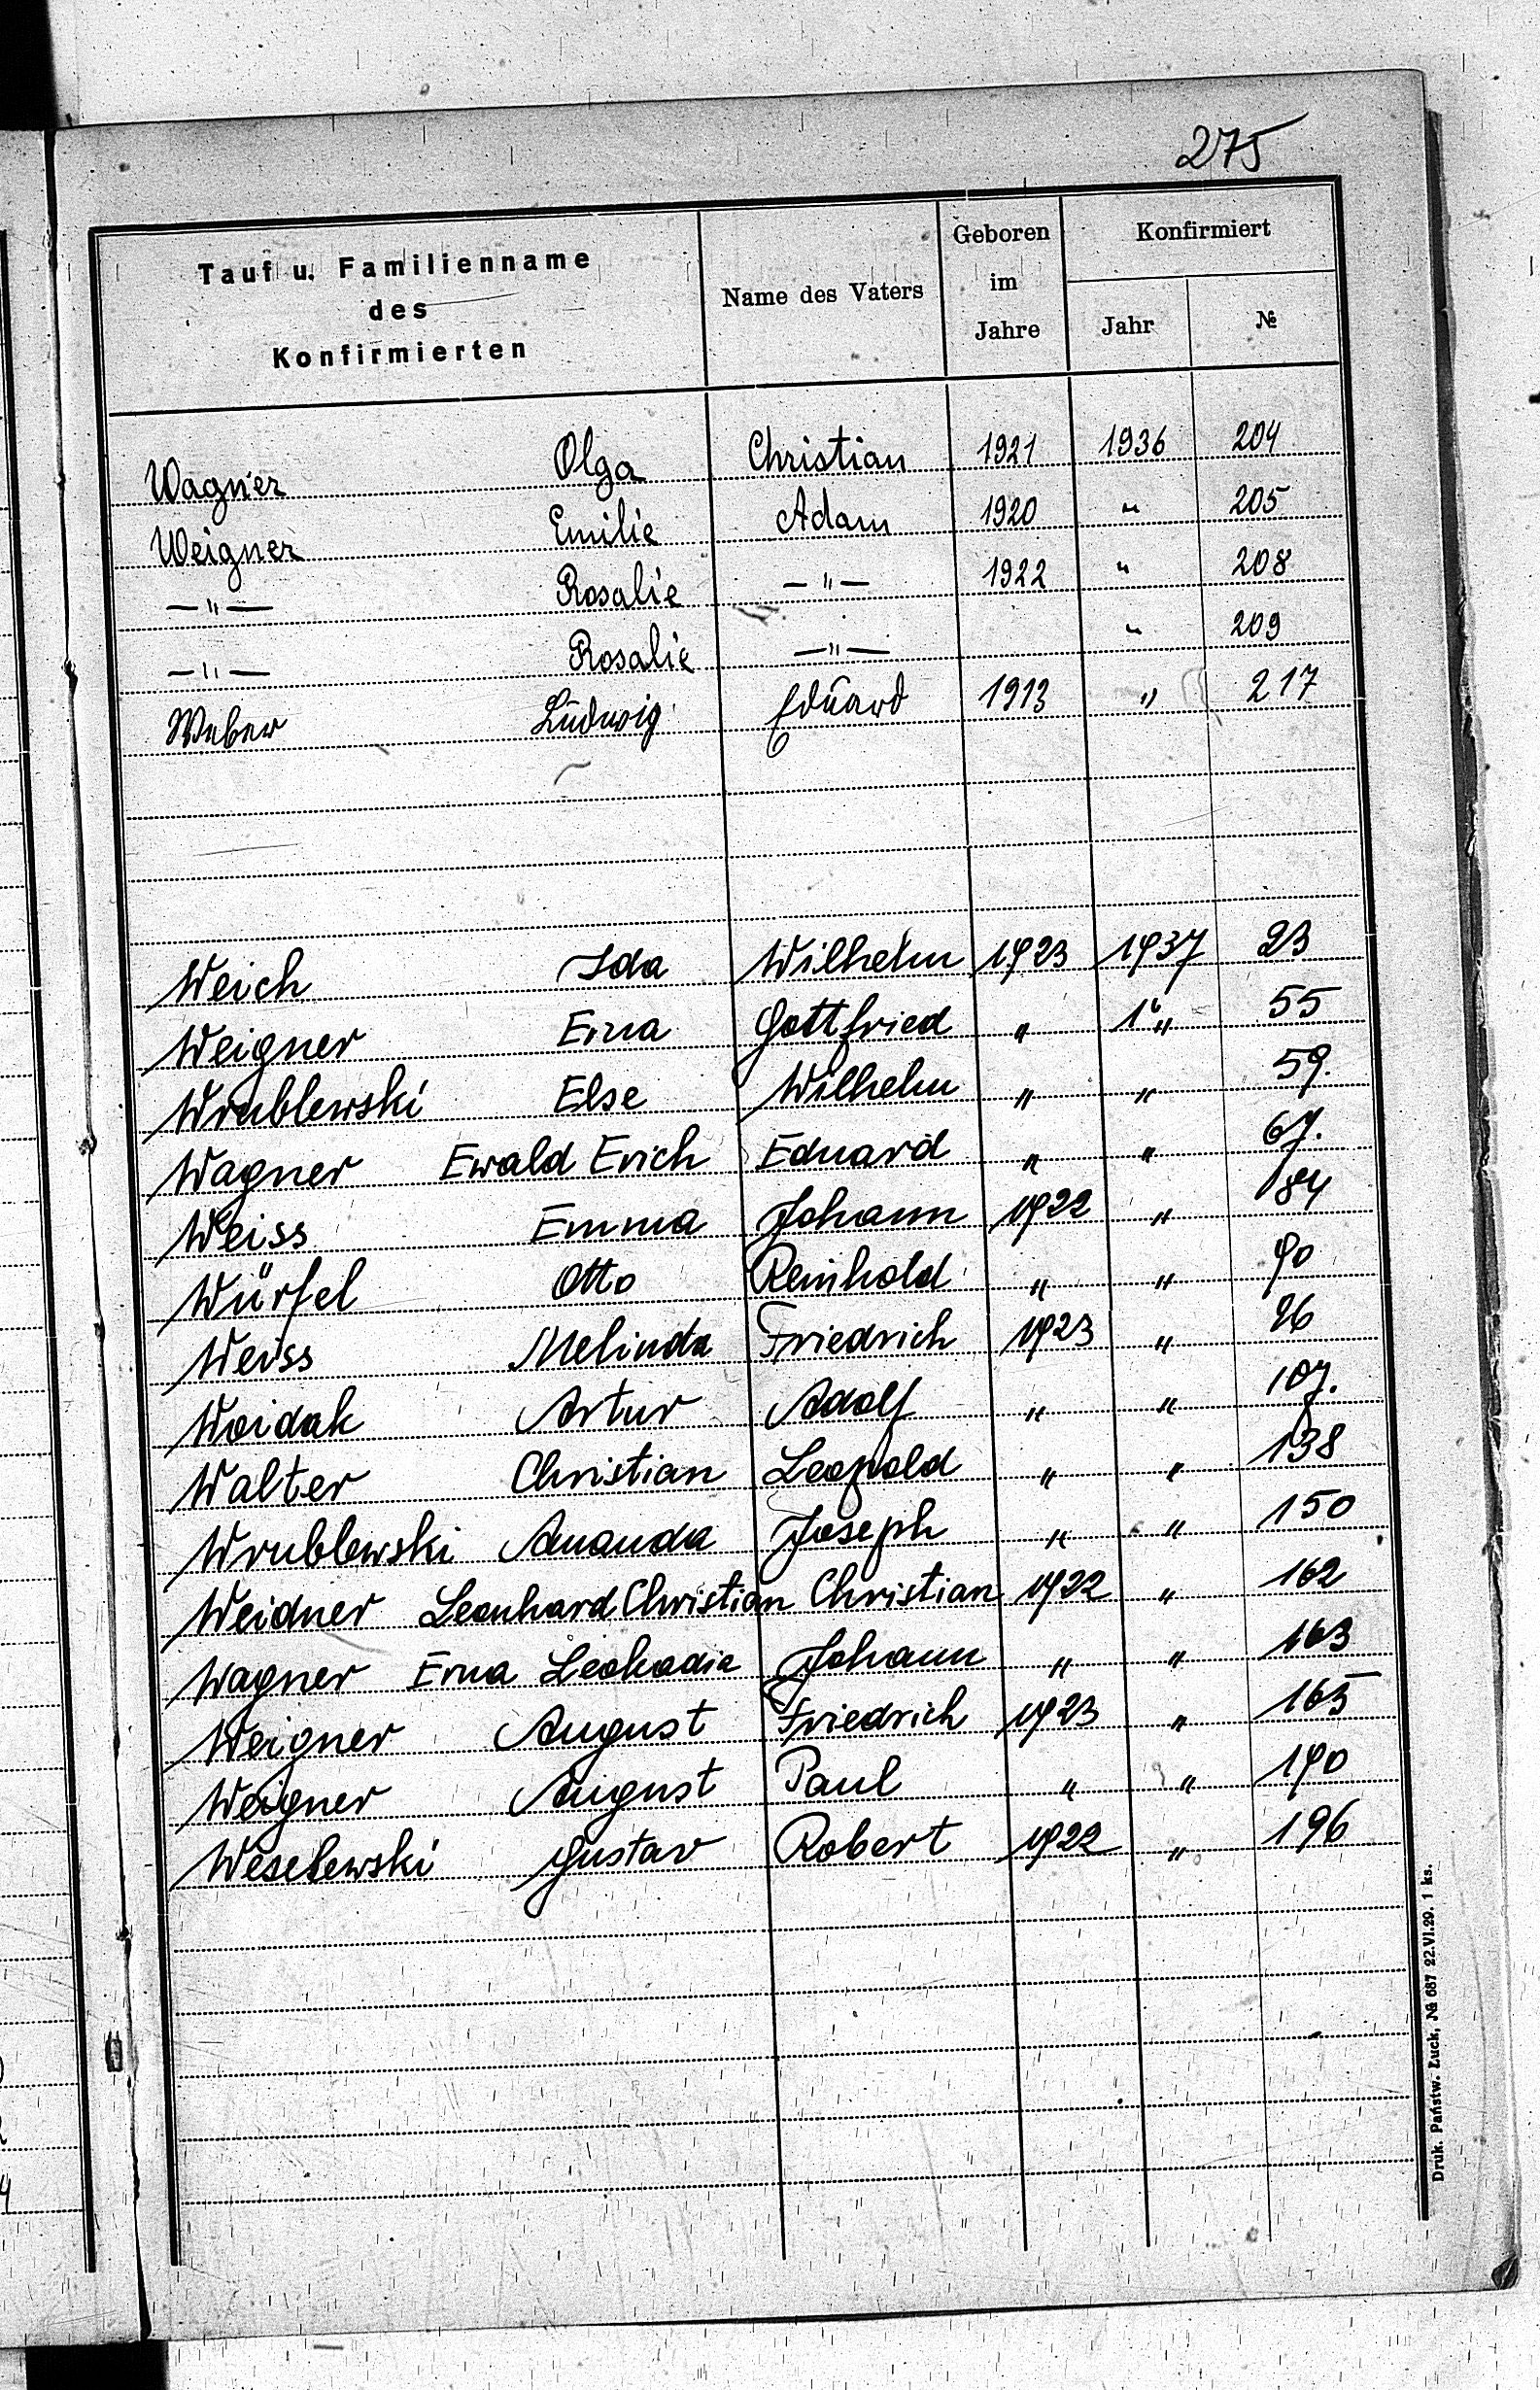 275
Tauf u. Familienname des Konfirmierten Name des Vaters Geboren im Jahre Konfirmiert Jahr №
Wagner Olga Christian 1921 1936 204
Weigner Emilie Adam 1920 " 205
—"— Rosalie —"— 1922 " 208
—"— Rosalie —"— " 209
Weber Ludwig Eduard 1913 " 217
Weich Ida Wilhelm 1923 1937 23
Weigner Erna Gottfried " " 55
Wrublewski Else Wilhelm " " 59.
Wagner Ewald Erich Eduard " " 67.
Weiss Emma Johann 1922 " 84
Würfel Otto Reinhold " " 90
Weiss Melinda Friedrich 1923 " 96
Woidak Artur Adolf " " 107.
Walter Christian Leopold " " 138
Wrublewski Amanda Joseph " " 150
Weidner Leonhard Christian Christian 1922 " 162
Wagner Erna Leokadie Johann " " 163
Weigner August Friedrich 1923 " 165
Weigner August Paul " " 190
Weselewski Gustav Robert 1922 " 196
Druk. Państw. Łuck, № 687 22.VI.29. 1 ks.